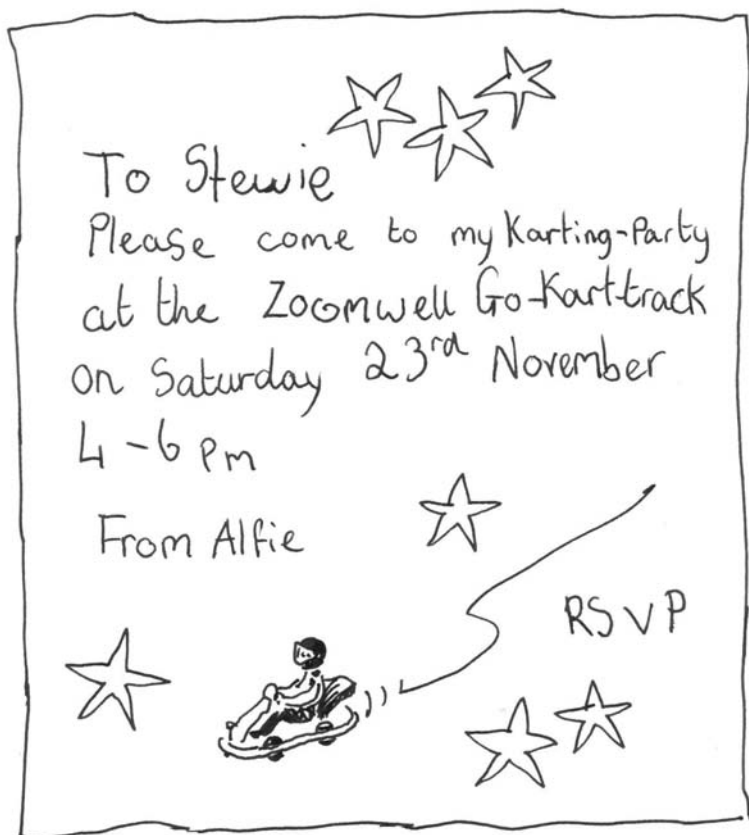 To Stewie
Please come to my Karting-Party
at the Zoomwell Go-Kart-track
on Saturday 23rd November
4-6 pm
From Alfie
RSVP